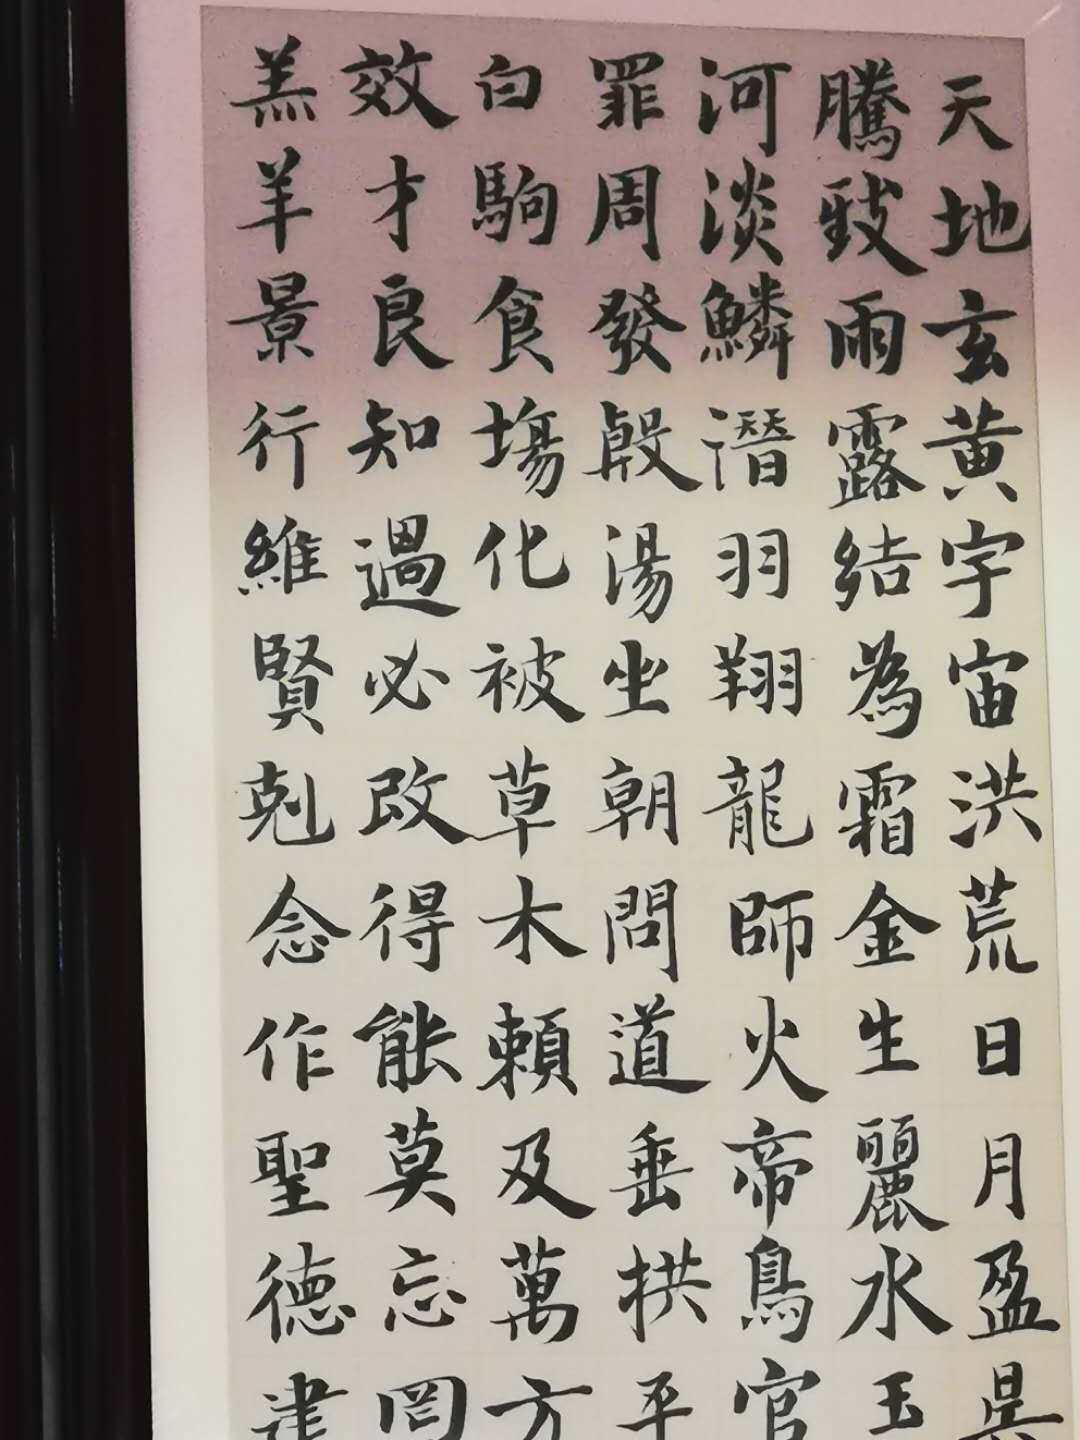 天地玄黃宇宙洪荒日月盈昃
騰致雨露結為霜金生麗水玉
河淡鱗潛羽翔龍師火帝鳥官
罪周發殷湯坐朝問道垂拱平
白駒食場化被草木賴及萬方
效才良知過必改得能莫忘罔
羔羊景行維賢剋念作聖德建